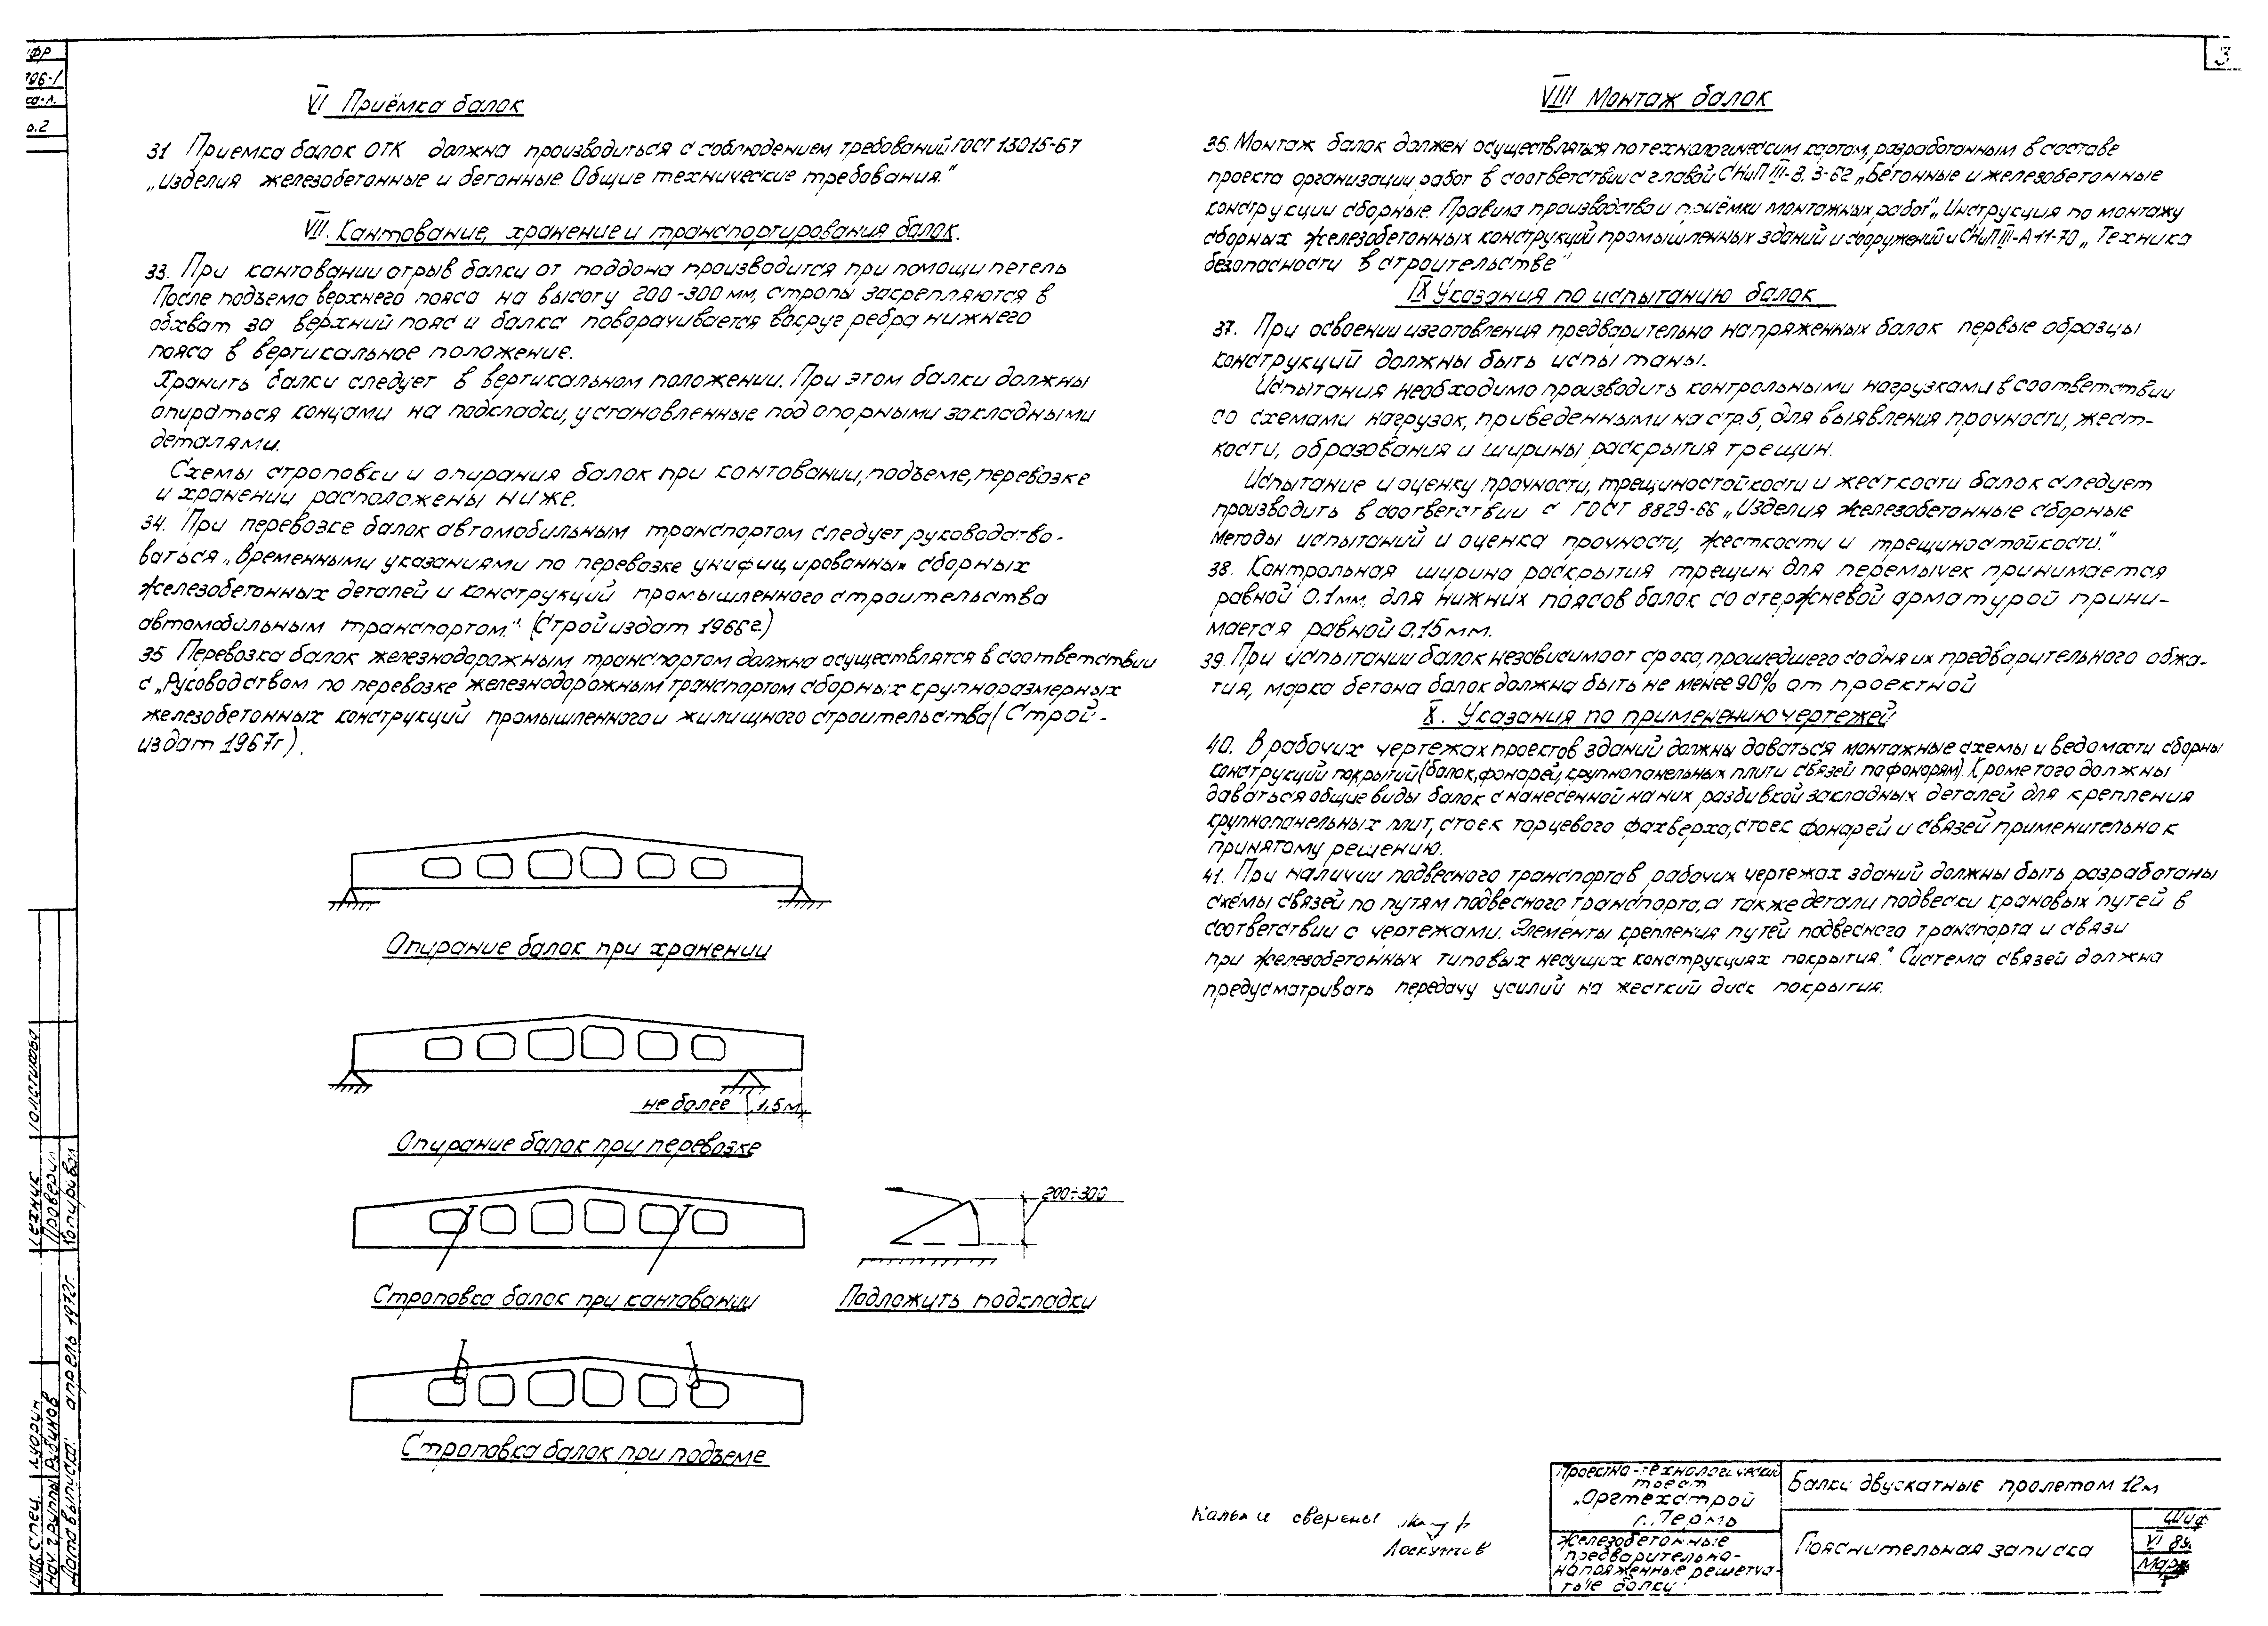 3
VI Приёмка балок
31 Приемка балок ОТК должна производиться с соблюдением требований ГОСТ 13015-67
„Изделия железобетонные и бетонные. Общие технические требования."
VII. Кантование, хранение и транспортирования балок.
33. При кантовании отрыв балки от поддона производится при помощи петель
После подъема верхнего пояса на высоту 200-300 мм, стропы закрепляются в
обхват за верхний пояс и балка поворачивается вокруг ребра нижнего
пояса в вертикальное положение.
Хранить балки следует в вертикальном положении. При этом балки должны
опираться концами на подкладки, установленные под опорными закладными
деталями.
Схемы строповки и опирания балок при контовании, подъеме, перевозке
и хранении расположены ниже.
34. При перевозке балок автомобильным транспортом следует руководство-
ваться „Временными указаниями по перевозке унифицированных сборных
железобетонных деталей и конструкций промышленного строительства
автомобильным транспортом." (Стройиздат 1966г.)
35 Перевозка балок железнодорожным транспортом должна осуществлятся в соответствии
с „Руководством по перевозке железнодорожным транспортом сборных крупноразмерных
железобетонных конструкций промышленного и жилищного строительства (Строй-
издат 1967г).
Опирание балок при хранении
не более 1.5м
Опирание балок при перевозке
200÷300
Строповка балок при кантовании
Подложить подкладки
Строповка балок при подъеме
VIII Монтаж балок
36. Монтаж балок должен осуществляться по технологическим картам, разработанным в составе
проекта организации работ в соответствии с главой СНиП III-В. 3-62 „Бетонные и железобетонные
конструкции сборные. Правила производства и приёмки монтажных работ", „Инструкция по монтажу
сборных железобетонных конструкций промышленных зданий и сооружений и СНиП III-А 11-70 „Техника
безопасности в строительстве"
IX Указания по испытанию балок
37. При освоении изготовления предварительно напряженных балок первые образцы
конструкций должны быть испытаны.
Испытания необходимо производить контрольными нагрузками в соответствии
со схемами нагрузок, приведенными на стр. 5, для выявления прочности, жест-
кости, образования и ширины раскрытия трещин.
Испытание и оценку прочности, трещиностойкости и жесткости балок следует
производить в соответствии с ГОСТ 8829-66 „Изделия железобетонные сборные
Методы испытаний и оценка прочности, жесткости и трещиностойкости."
38. Контрольная ширина раскрытия трещин для перемычек принимается
равной 0.1мм, для нижних поясов балок со стержневой арматурой прини-
мается равной 0.15мм.
39. При испытании балок независимо от срока, прошедшего со дня их предварительного обжа-
тия, марка бетона балок должна быть не менее 90% от проектной
X. Указания по применению чертежей
40. В рабочих чертежах проектов зданий должны даваться монтажные схемы и ведомости сборны
конструкций покрытий (балок, фонарей, крупнопанельных плит и связей по фонарям). Кроме того должны
даваться общие виды балок с нанесенной на них разбивкой закладных деталей для крепления
крупнопанельных плит, стоек торцевого фахверка, стоек фонарей и связей применительно к
принятому решению.
41. При наличии подвесного транспорта в рабочих чертежах зданий должны быть разработаны
схемы связей по путям подвесного транспорта, а также детали подвески крановых путей в
соответствии с чертежами. Элементы крепления путей подвесного транспорта и связи
при железобетонных типовых несущих конструкциях покрытия." Система связей должна
предусматривать передачу усилий на жесткий диск покрытия.
Кальки сверены
Лоскутов
Проектно-технологический
трест
„Оргтехстрой
г. Пермь
Железобетонные
предварительно-
напряженные решетча-
тые балки
Балки двускатные пролетом 12м
Пояснительная записка
Шиф
VI 89
Марк
Толстикова
Техник
Проверил
Копировал
Нач группы Рубинов
Дата выпуска: апрель 1972г.